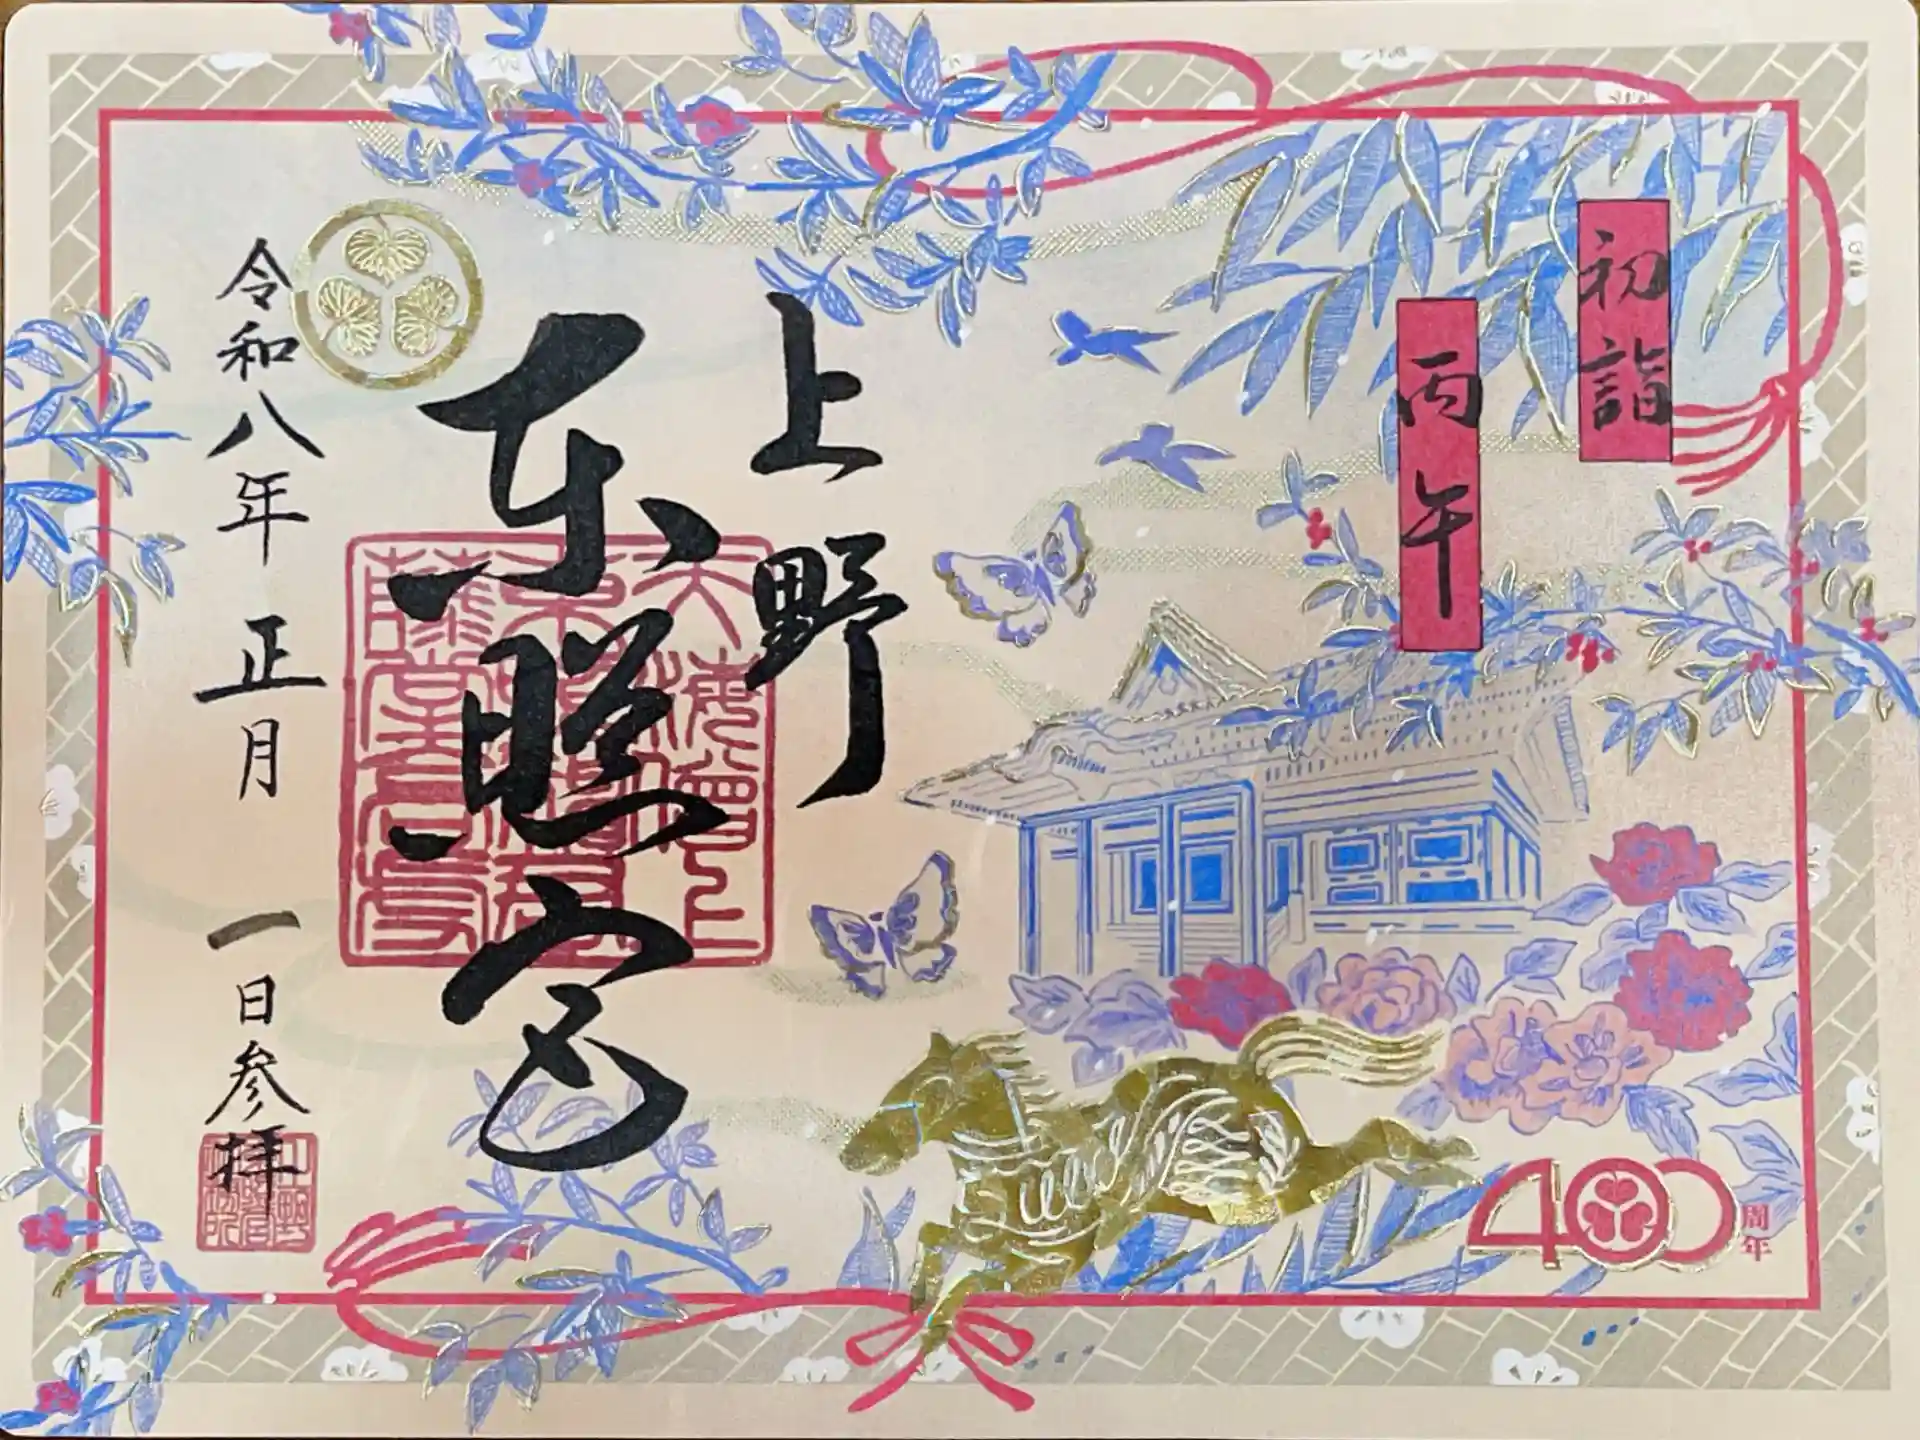 初詣
丙午
上野
東照宮
令和八年 正月 一日参拝
400
周年